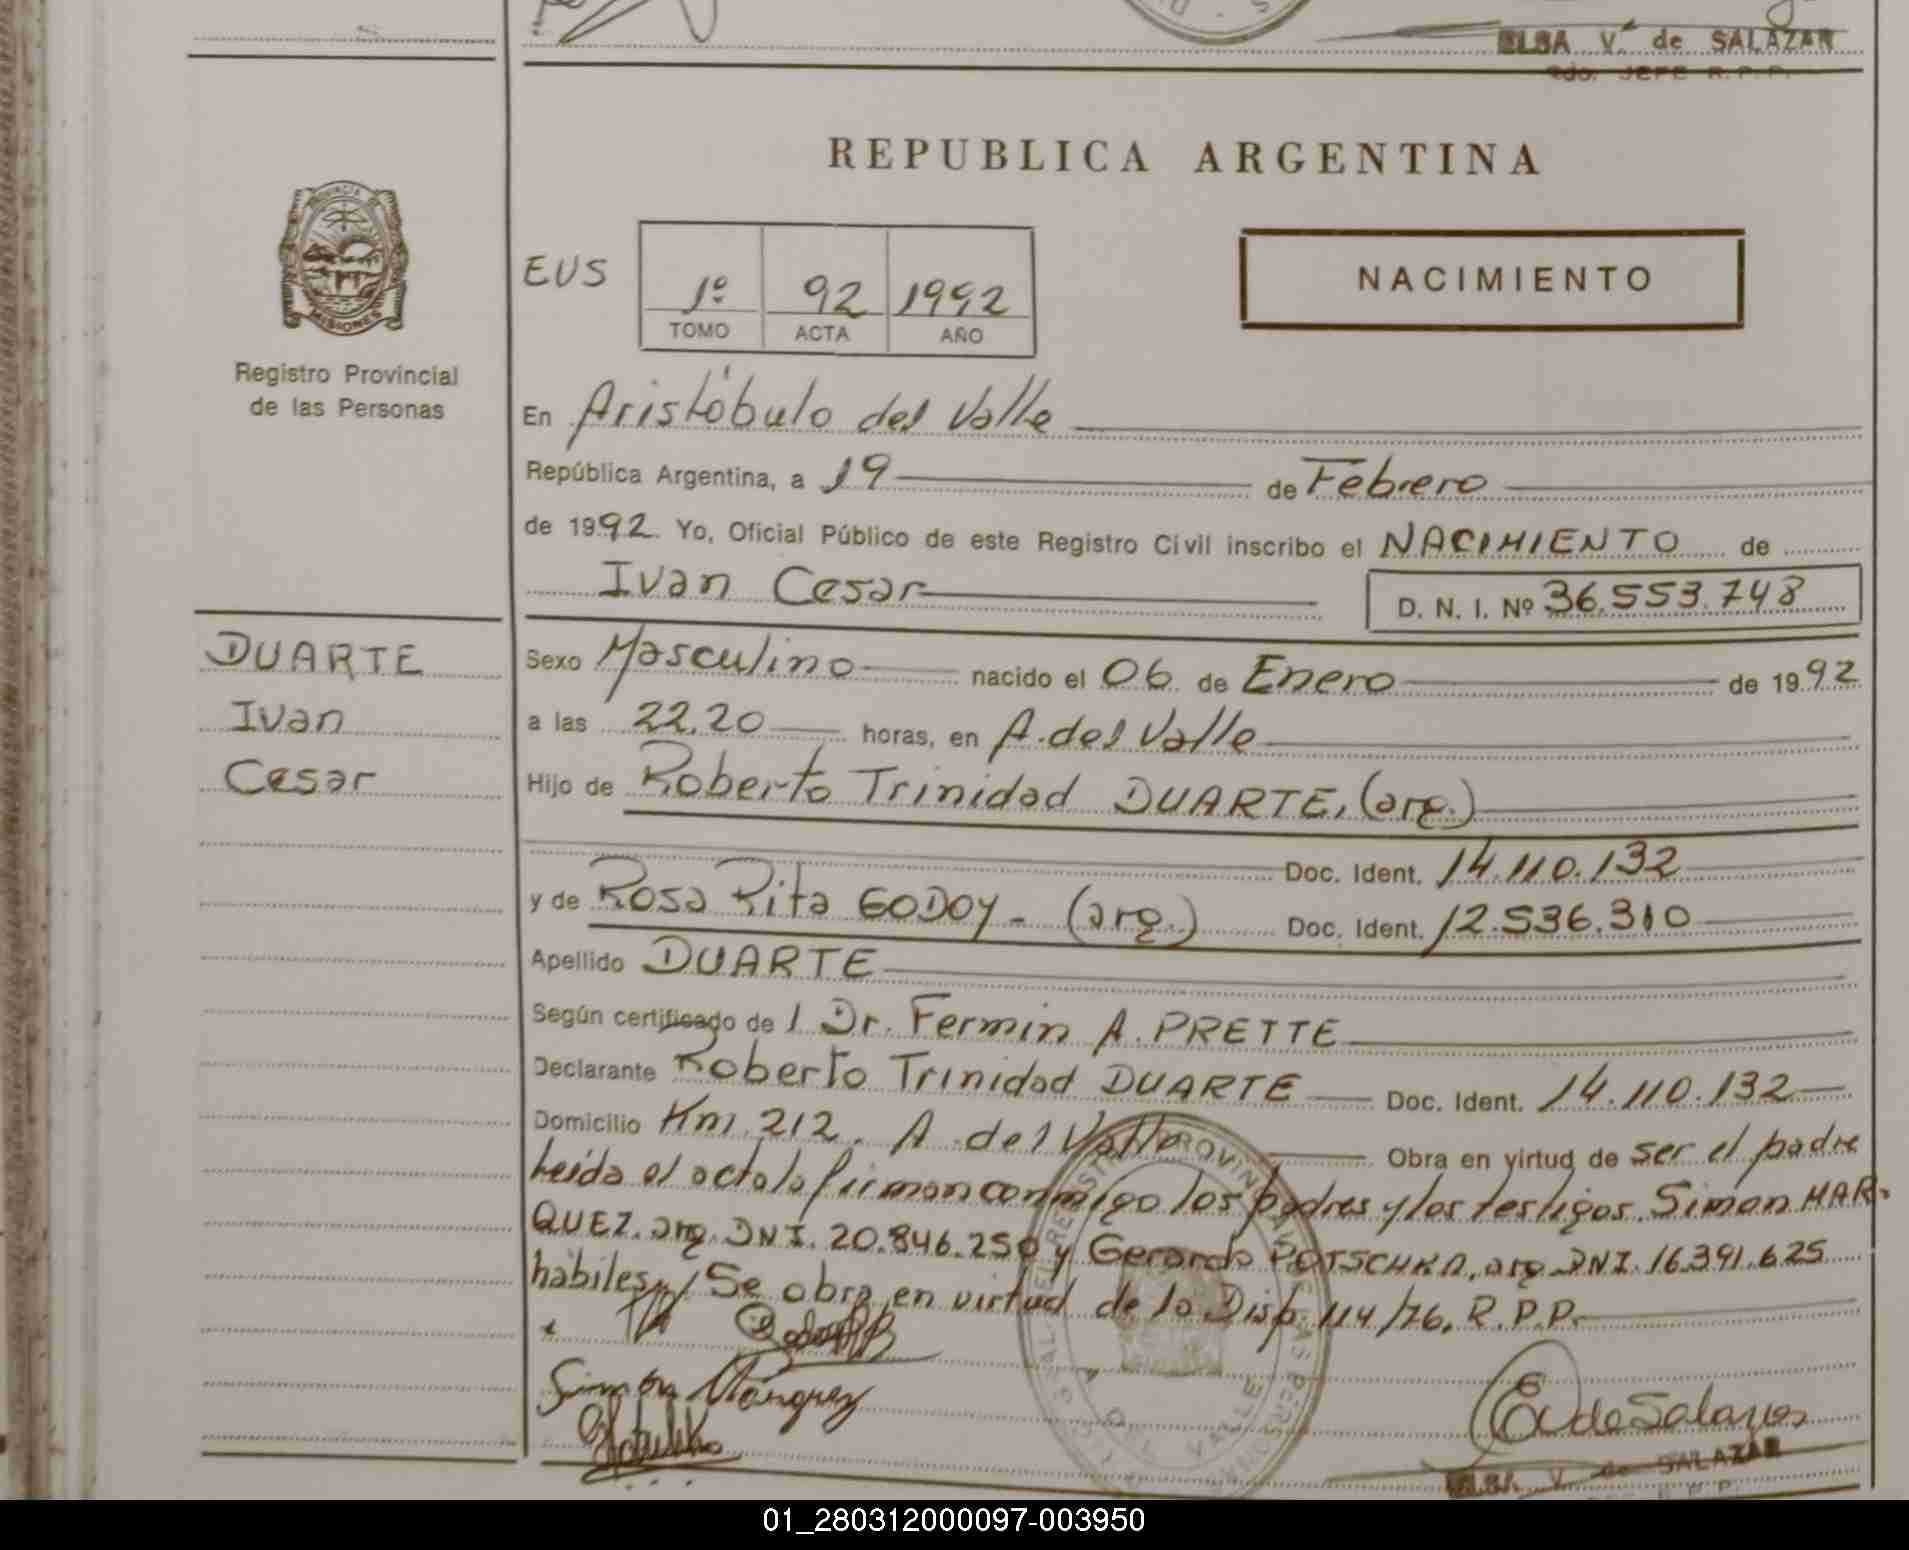 ELSA V. de SALAZAR
2do. JEFE R. P. P.
REPUBLICA ARGENTINA
PROVINCIA
MISIONES
Registro Provincial
de las Personas
EUS
1º 92 1992
TOMO ACTA AÑO
NACIMIENTO
En Aristóbulo del Valle
República Argentina, a 19 de Febrero
de 1992. Yo, Oficial Público de este Registro Civil inscribo el NACIMIENTO de
Ivan Cesar D. N. I. Nº 36.553.748
DUARTE
Ivan
Cesar
Sexo Masculino nacido el 06 de Enero de 1992
a las 22.20 horas, en A. del Valle
Hijo de Roberto Trinidad DUARTE, (arg.)
Doc. Ident. 14.110.132
y de Rosa Rita GODOY - (arg.) Doc. Ident. 12.536.310
Apellido DUARTE
Según certificado de 1 Dr. Fermin A. PRETTE
Declarante Roberto Trinidad DUARTE Doc. Ident. 14.110.132
Domicilio Km 212. A. del Valle Obra en virtud de ser el padre
Leída el acta la firman conmigo los padres y los testigos. Simon MAR-
QUEZ. arg. DNI. 20.846.250 y Gerardo POTSCHKA, arg. DNI. 16.391.625
hábiles, Se obra en virtud de la Disp. 114/76. R.P.P.
Simón Márquez
E V de Salazar
ELSA V. de SALAZAR
DEL VALLE
01_280312000097-003950